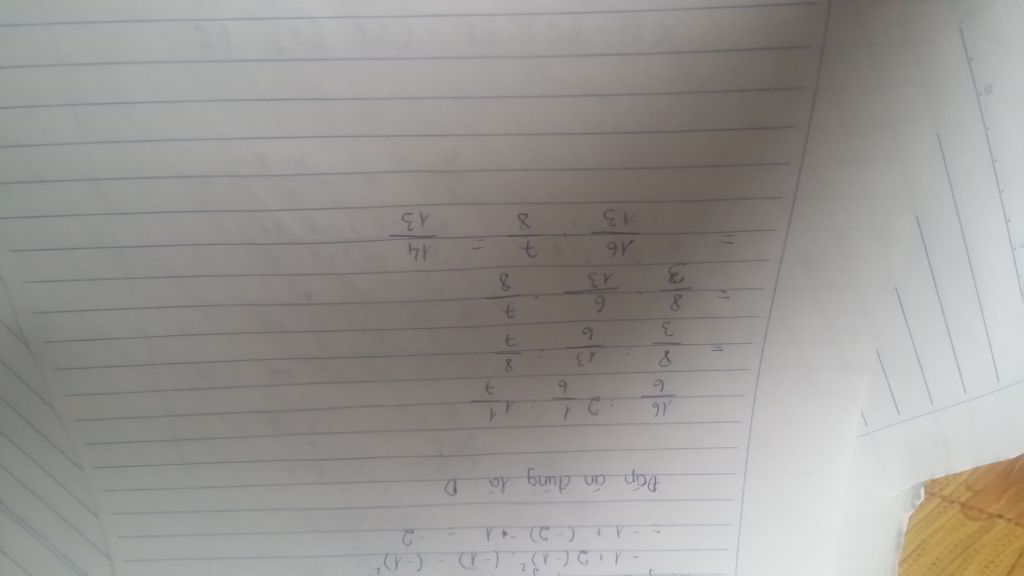 -1 + 2(-1)² . (-1) - (-1)²
= -1 + (-2) + 1 = -2
Đáp án đúng là D
16/6 : 2 1/6 : 1 1/7
= 8/3 : 13/6 : 8/7
= 8/3 . 6/13 . 7/8
= 16/13 . 7/8 = 14/13